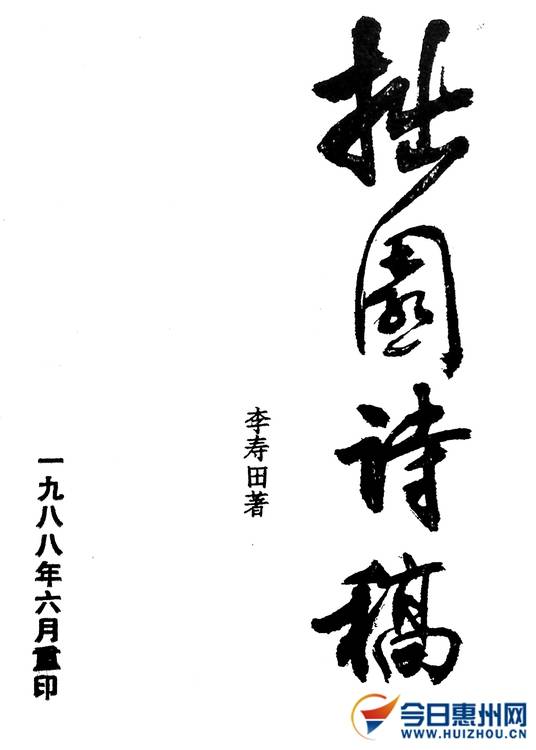 拙園诗稿
李寿田著
一九八八年六月重印
今日惠州网
WWW.HUIZHOU.CN